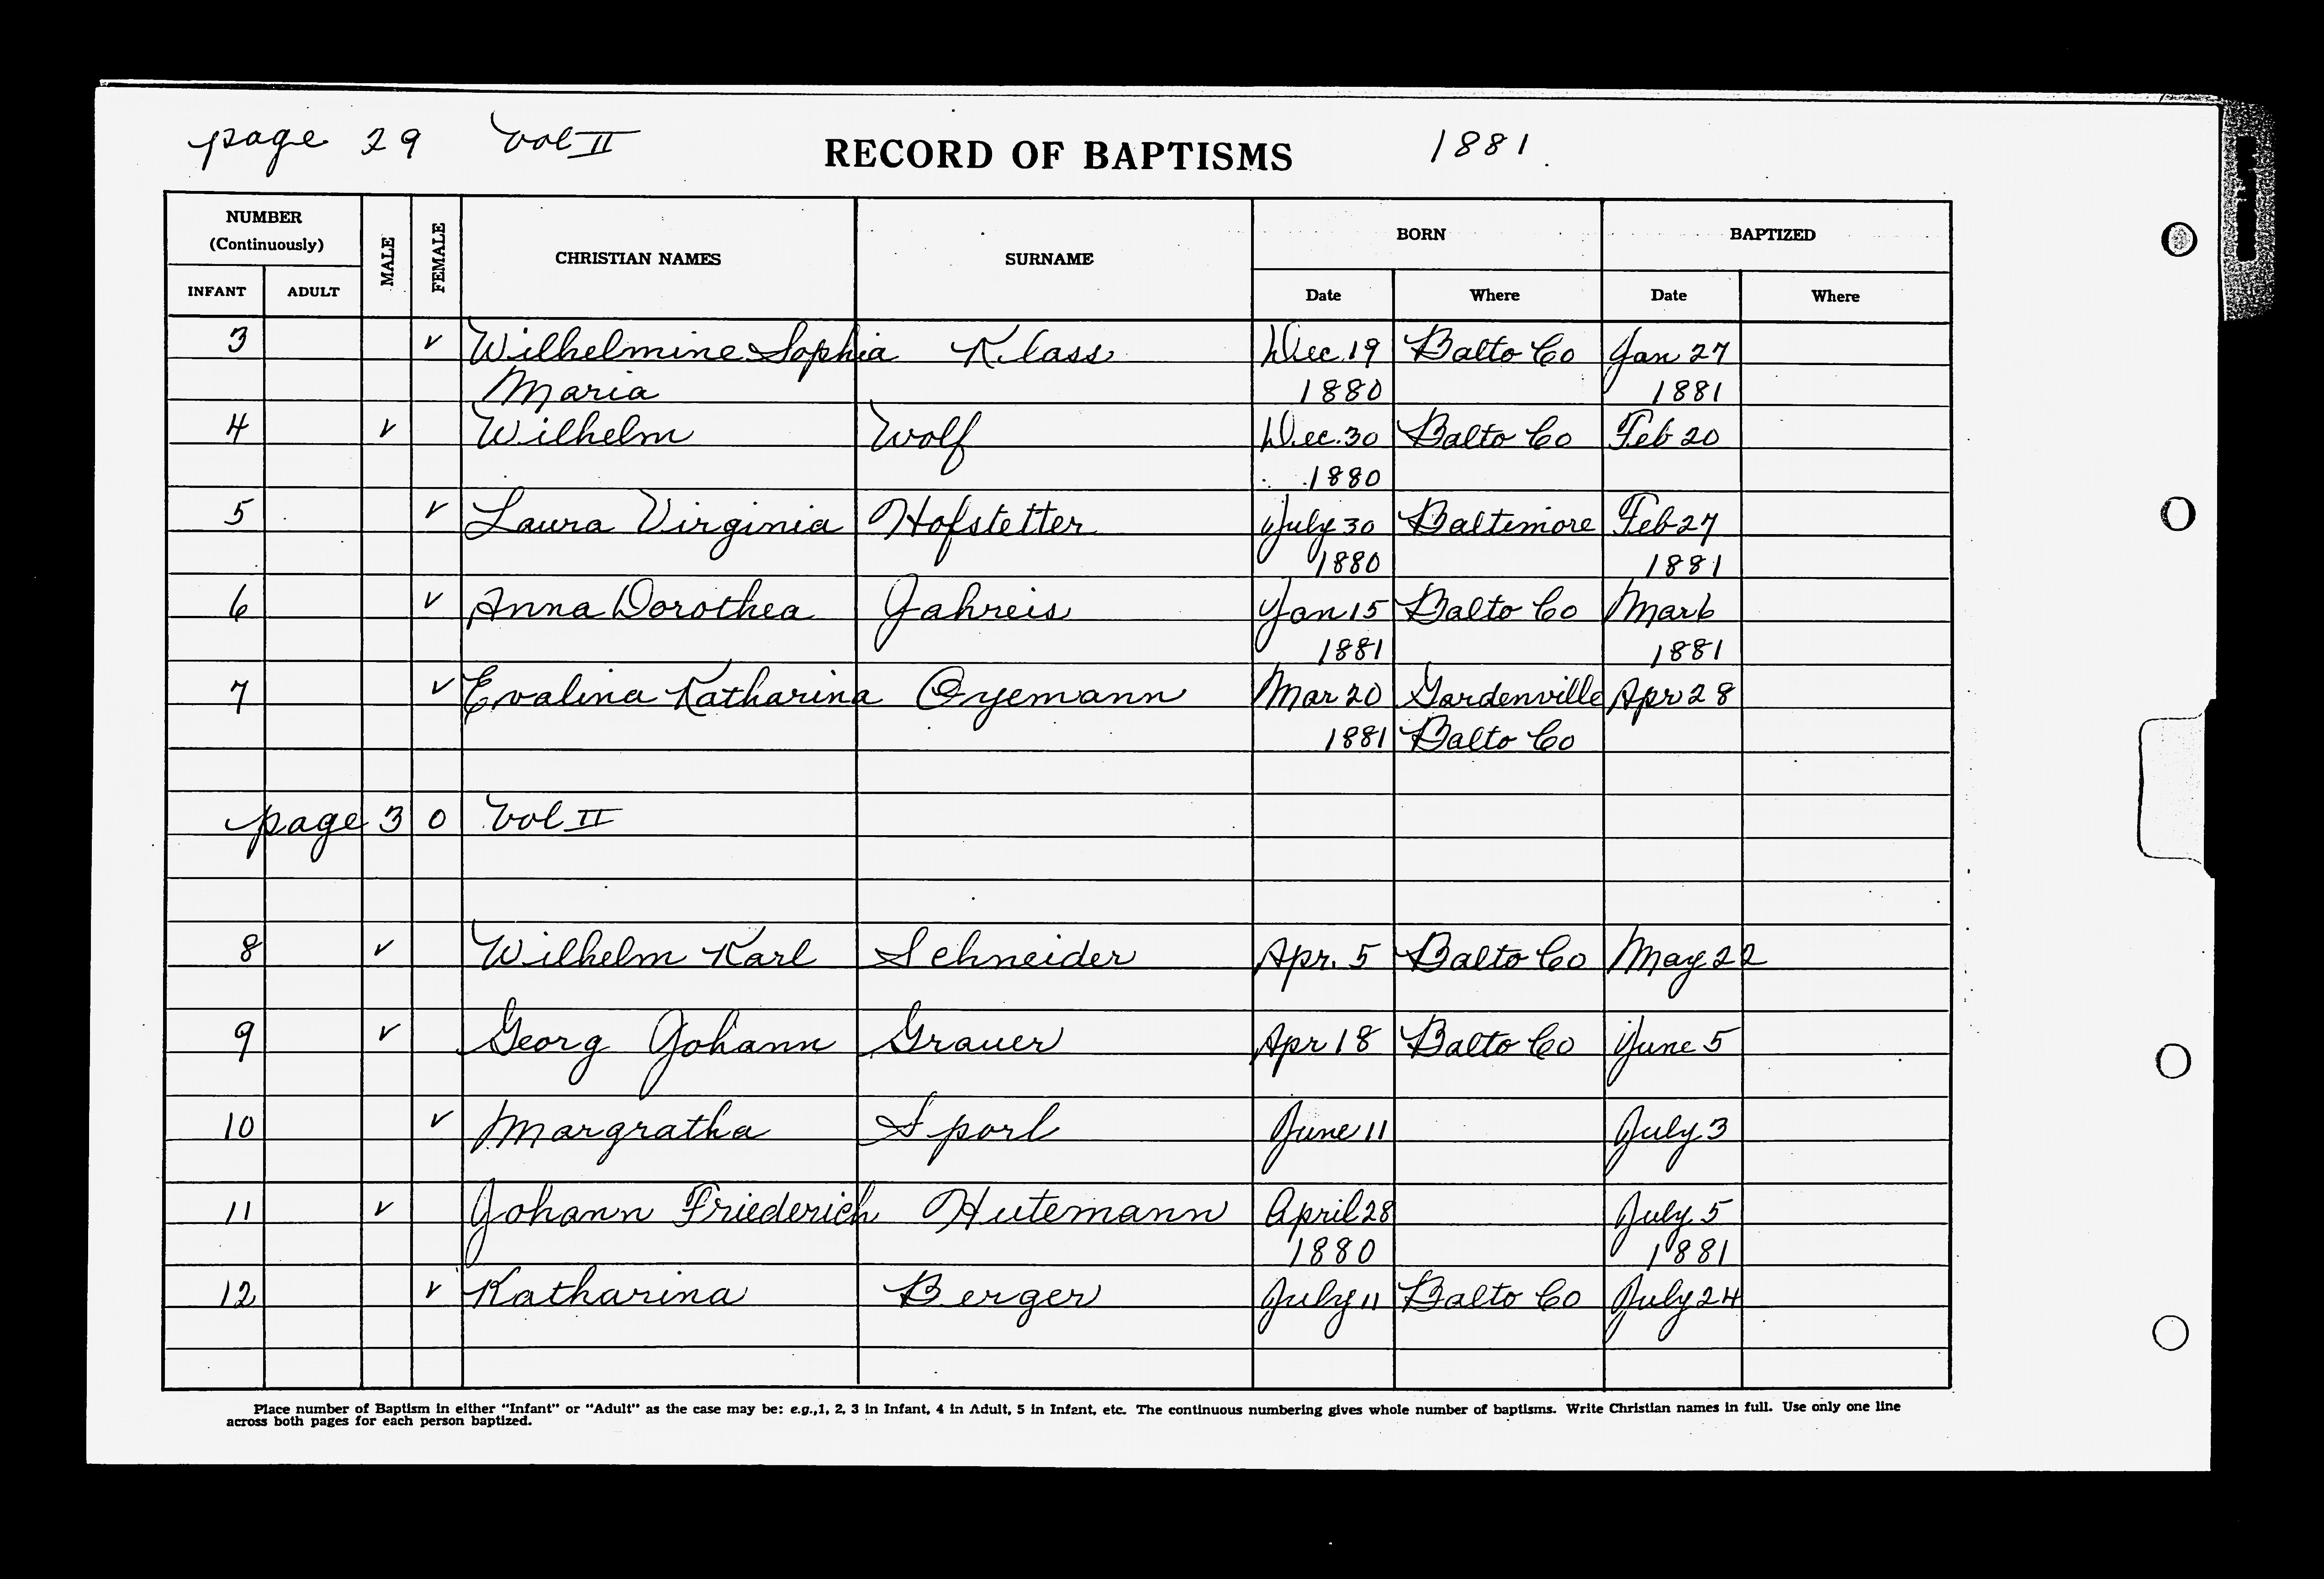 page 29 Vol II RECORD OF BAPTISMS 1881.
NUMBER (Continuously) MALE FEMALE CHRISTIAN NAMES SURNAME BORN BAPTIZED
INFANT ADULT Date Where Date Where
3 v Wilhelmine Sophia Klass Dec. 19 Balto Co Jan 27
Maria 1880 1881
4 v Wilhelm Wolf Dec. 30 Balto Co Feb 20
1880
5 v Laura Virginia Hofstetter July 30 Baltimore Feb 27
1880 1881
6 v Anna Dorothea Jahreis Jan 15 Balto Co Mar 6
1881 1881
7 v Evalina Katharina Oyemann Mar 20 Gardenville Apr 28
1881 Balto Co
page 30 Vol II
8 v Wilhelm Karl Schneider Apr. 5 Balto Co May 22
9 v Georg Johann Grauer Apr 18 Balto Co June 5
10 v Margratha Sporl June 11 July 3
11 v Johann Friederich Hutemann April 28 July 5
1880 1881
12 v Katharina Berger July 11 Balto Co July 24
Place number of Baptism in either "Infant" or "Adult" as the case may be: e.g., 1, 2, 3 in Infant, 4 in Adult, 5 in Infant, etc. The continuous numbering gives whole number of baptisms. Write Christian names in full. Use only one line
across both pages for each person baptized.